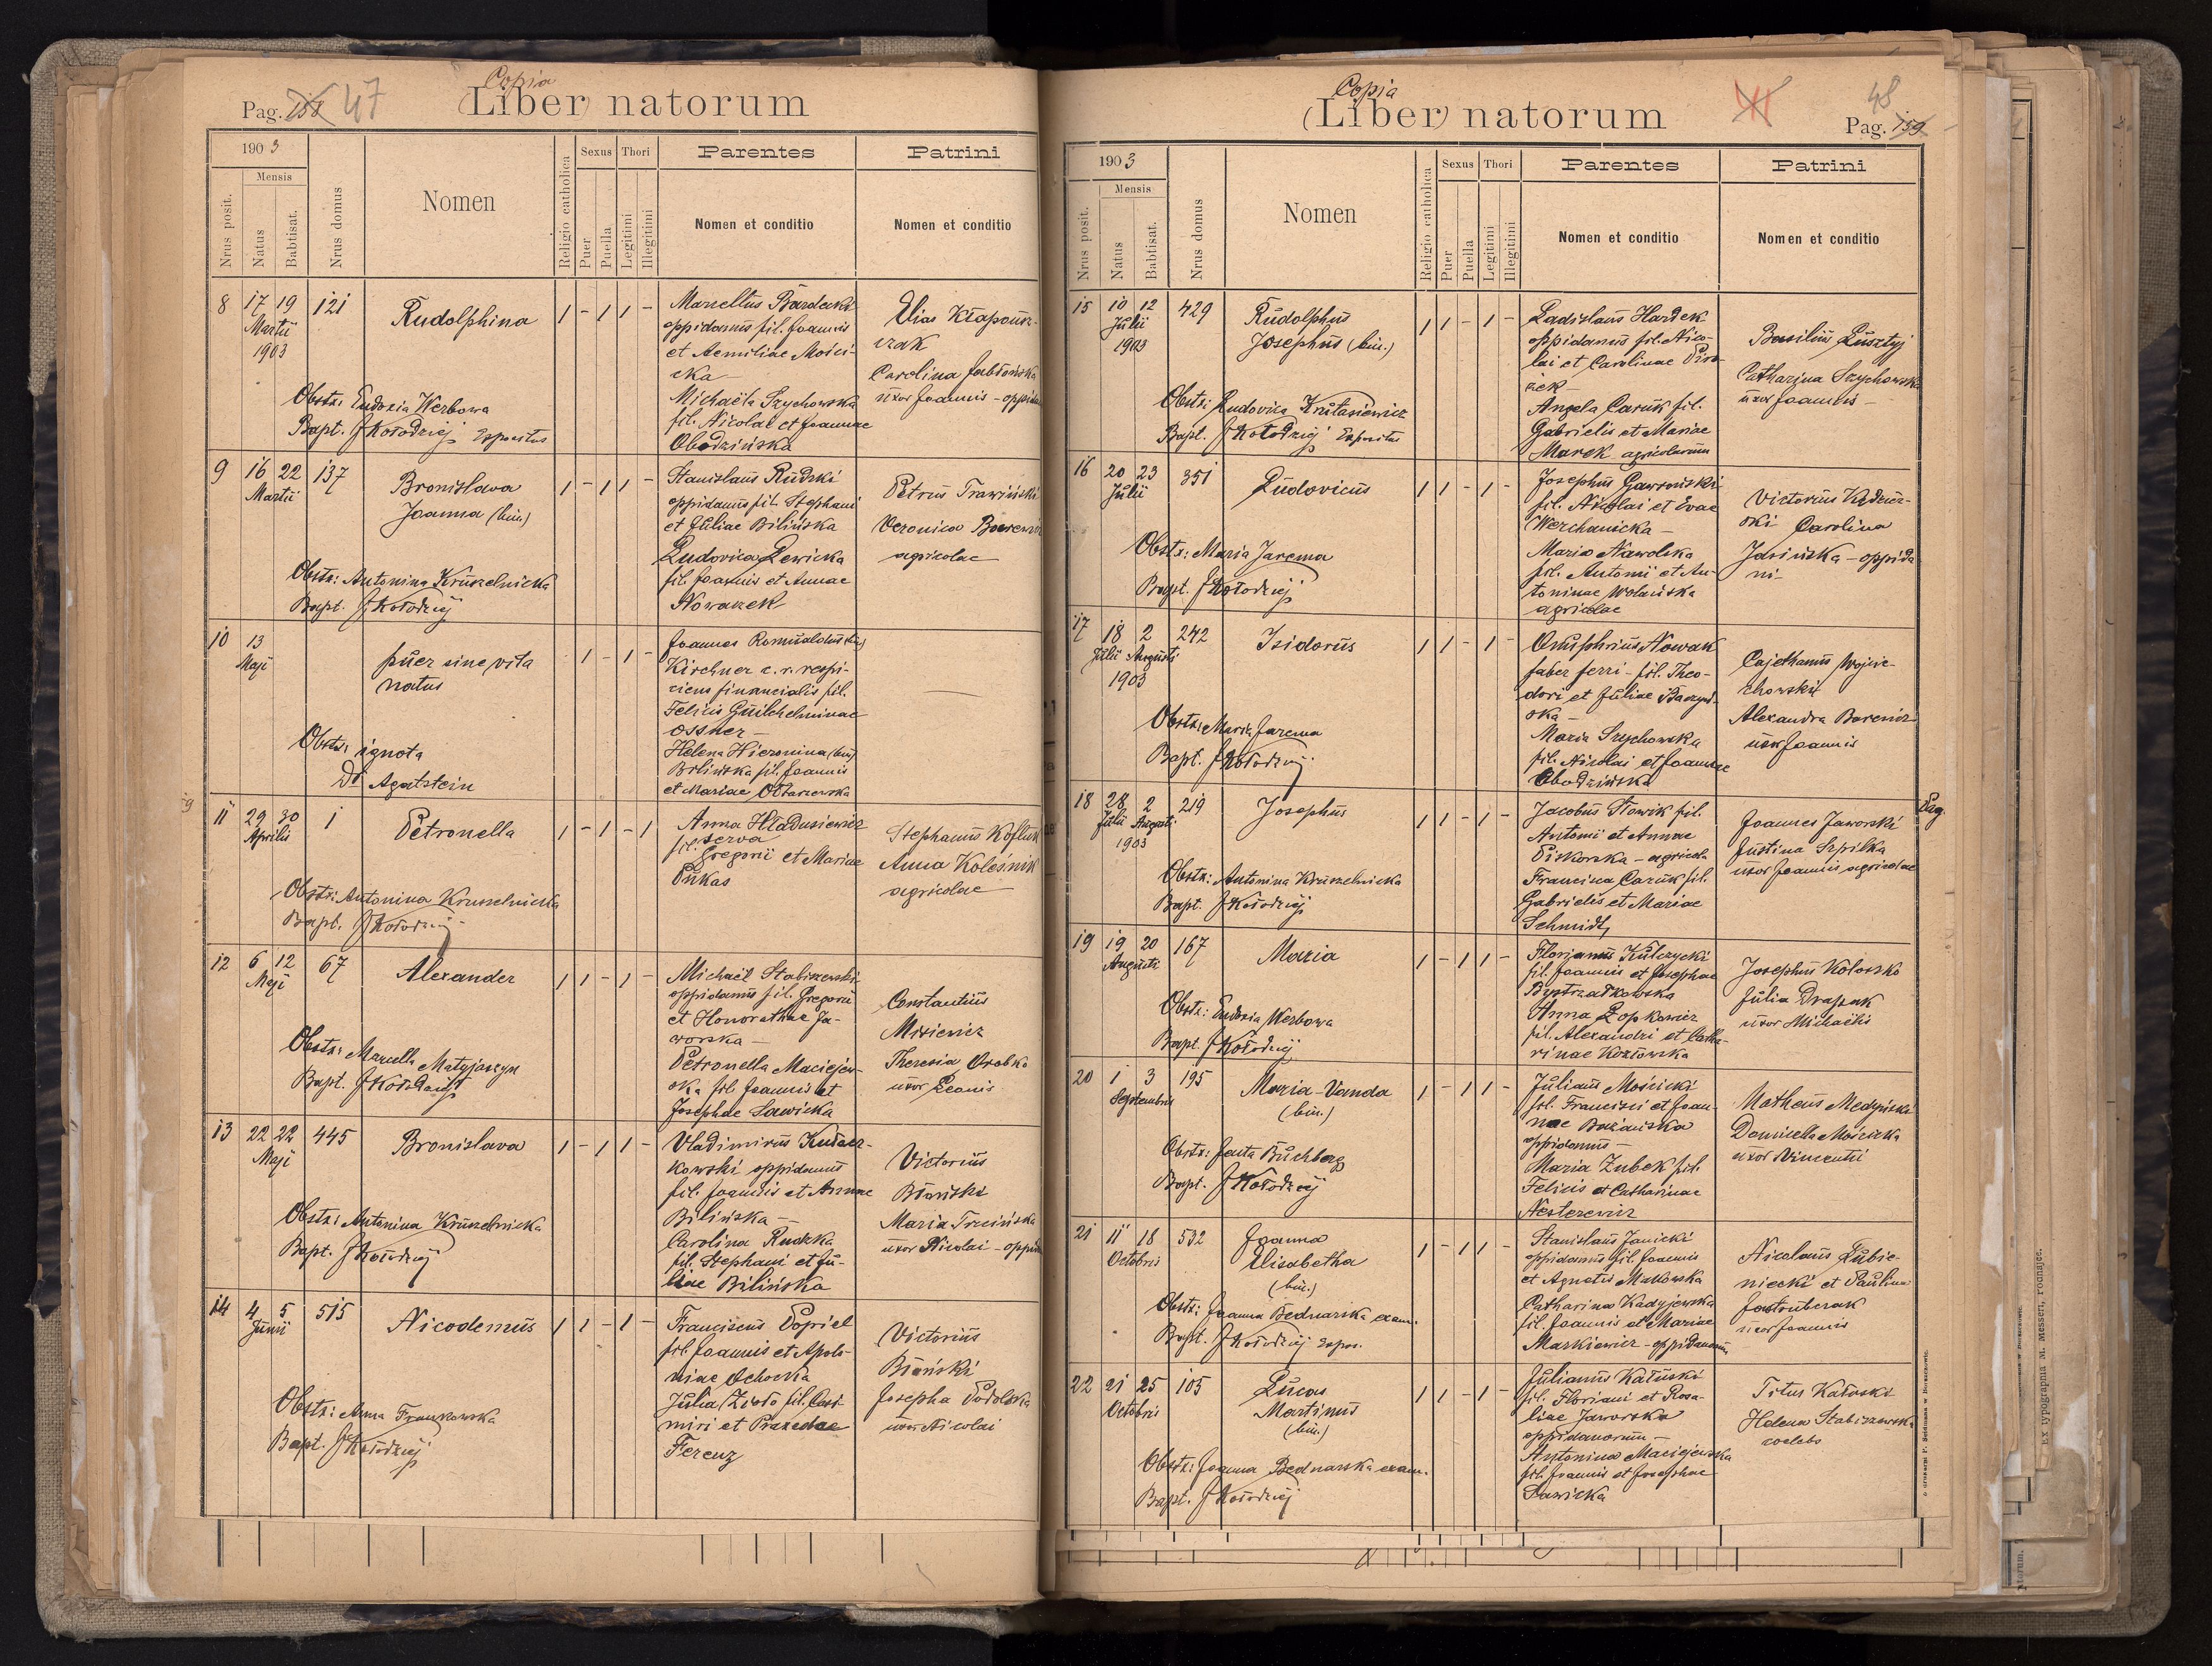 Copia
Pag. 158 47 (Liber) natorum
1903
Mensis
Nrus posit.
Natus
Babtisat.
Nrus domus
Nomen
Religio catholica
Sexus
Puer
Puella
Thori
Legitimi
Illegitimi
Parentes
Nomen et conditio
Patrini
Nomen et conditio
8 17 19 121 Rudolphina 1 - 1 1 -
Martii
1903
Marcellus Bardecki
oppidanus fil. Joannis
et Aemiliae Mości-
cka
Michaëla Szychowska
fil. Nicolai et Joannae
Obodzińska
Elias Kłapousz-
czak
Carolina Jabłońska
uxor Joannis - oppidani
Obstr: Eudoxia Werbowa
Bapt. J Kołodziej Expositus
9 16 22 137 Bronislava 1 - 1 1 -
Martii
Joanna (bin.)
Stanislaus Rudzki
oppidanus fil. Stephani
et Juliae Bilińska
Ludovica Lewicka
fil. Joannis et Annae
Nowaczek
Petrus Trawiński
Veronica
agricolae
Obstr: Antonina Kruszelnicka
Bapt. J Kołodziej
10 13 puer sine vita - 1 - 1 -
Maji
natus
Joannes Romualdus (bin)
Kirchner c. r. respi-
ciens financialis fil.
Felicis Guilhelminae
Ossner -
Helena Hieronina (bin)
Bilińska fil. Joannis
et Mariae Ołtarzewska
Obstr: ignota
Dr Agatstein
11 29 30 1 Petronella 1 - 1 - 1
Aprilis
Anna Hladusiewicz
serva
fil. Gregorii et Mariae
Pukas
Stephanus Kostiuk
Anna Koleśnik
agricolae
Obstr: Antonina Kruszelnicka
Bapt. J Kołodziej
12 6 12 67 Alexander 1 1 - 1 -
Maji
Michaël Stabiszewski
oppidanus fil. Gregorii
et Honorathae Ja-
worska -
Petronella Maciejew-
ska fil. Joannis et
Josephae Sawicka
Constantius
Misiewicz
Theresia Orobko
uxor Leonis
Obstr: Marcella Matyjaszyn
Bapt. J Kołodziej
13 22 22 445 Bronislava 1 - 1 1 -
Maji
Vladimirus Kułacz-
kowski oppidanus
fil. Joannis et Annae
Bilińska -
Carolina Rudzka
fil. Stephani et Ju-
liae Bilińska
Victorius
Błoński
Maria Trzcińska
uxor Nicolai - oppidani
Obstr: Antonina Kruszelnicka
Bapt. J Kołodziej
14 4 5 515 Nicodemus 1 1 - 1 -
Junii
Franciscus Popiel
fil. Joannis et Apolo-
niae Ochocka
Julia Zioło fil. Casi-
miri et Praxedae
Ferenz
Victorius
Błoński
Josepha Podolska
uxor Nicolai
Obstr: Anna Frankowska
Bapt. J Kołodziej
Copia
(Liber) natorum
48
Pag. 159
1903
Mensis
Nrus posit.
Natus
Babtisat.
Nrus domus
Nomen
Religio catholica
Sexus
Puer
Puella
Thori
Legitimi
Illegitimi
Parentes
Nomen et conditio
Patrini
Nomen et conditio
15 10 12 429 Rudolphus 1 1 - 1 -
Julii
1903
Josephus (bin.)
Ladislaus Hardek
oppidanus fil. Nico-
lai et Carolinae
Angela Caruk fil.
Gabrielis et Mariae
Marek agricolarum
Basilius Lusztyj
Catharina Szychowska
uxor Joannis -
Obstr: Ludovica Krułasiewicz
Bapt. J Kołodziej Expositus
16 20 23 351 Ludovicus 1 1 - 1 -
Julii
Josephus Gawroński
fil. Nicolai et Evae
Werchanicka -
Maria Nawolska
fil. Antonii et An-
toninae Wolańska
agricolae
Victorius
ski Carolina
Jasińska - oppida
ni -
Obstr: Maria Jarema
Bapt. J Kołodziej
17 18 2 242 Isidorus 1 1 - 1 -
Julii Augusti
1903
Onuphrius Nowak
faber ferri - fil. Theo-
dori et Juliae Baczyń-
ska -
Maria Szychowska
fil. Nicolai et Joannae
Obodzińska
Cajethanus Wojcie-
chowski
Alexandra Barewicz
uxor Joannis
Obstr: Maria Jarema
Bapt. J Kołodziej
18 28 2 219 Josephus 1 1 - 1 -
Julii Augusti
1903
Jacobus Słowik fil.
Antonii et Annae
Piskorska - agricola
Francisca Caruk fil.
Gabrielis et Mariae
Schmidt
Joannes Jaworski
Justina Szpilka
uxor Joannis agricolae
Pag.
Obstr: Antonina Kruszelnicka
Bapt. J Kołodziej
19 19 20 167 Maria 1 - 1 1 -
Augusti
Florjanus Kulczycki
fil. Joannis et Josephae
Bystrzatkowska
Anna Łopkowicz
fil. Alexandri et Catha-
rinae Kozłowska
Josephus Kołossko
Julia Drapak
uxor Michaëlis
Obstr: Eudoxia Werbowa
Bapt. J Kołodziej
20 1 3 195 Maria-Vanda 1 - 1 1 -
Septembris
(bin.)
Julianus Mościcki
fil. Francisci et Joan-
nae
oppidanus -
Maria Zubek fil.
Felicis et Catharinae
Nesterewicz
Matheus Medyński
Domicella Mościcka
uxor Vincentii
Obstr: Jenta Buchberg
Bapt. J Kołodziej
21 11 18 532 Joanna 1 - 1 1 -
Octobris
Elisabetha
(bin.)
Stanislaus Janicki
oppidanus fil. Joannis
et Agnetis Makowska
Catharina Kadyjewska
fil. Joannis et Mariae
Markiewicz - oppidanorum
Nicolaus Lubie-
niecki et Paulina
Jastrubczak
uxor Joannis
Obstr: Joanna Bednarska exam.
Bapt. J Kołodziej expos.
22 21 25 105 Lucas 1 1 - 1 -
Octobris
Martinus
(bin.)
Julianus Kałuski
fil. Floriani et Rosa-
liae Jaworska
oppidanorum -
Antonina Maciejewska
fil. Joannis et Josephae
Sawicka
Titus Kałuski
Helena Stabiszewska
coelebs
Obstr: Joanna Bednarska exam.
Bapt. J Kołodziej
Ex typographia M. Messeri, rodnaje.